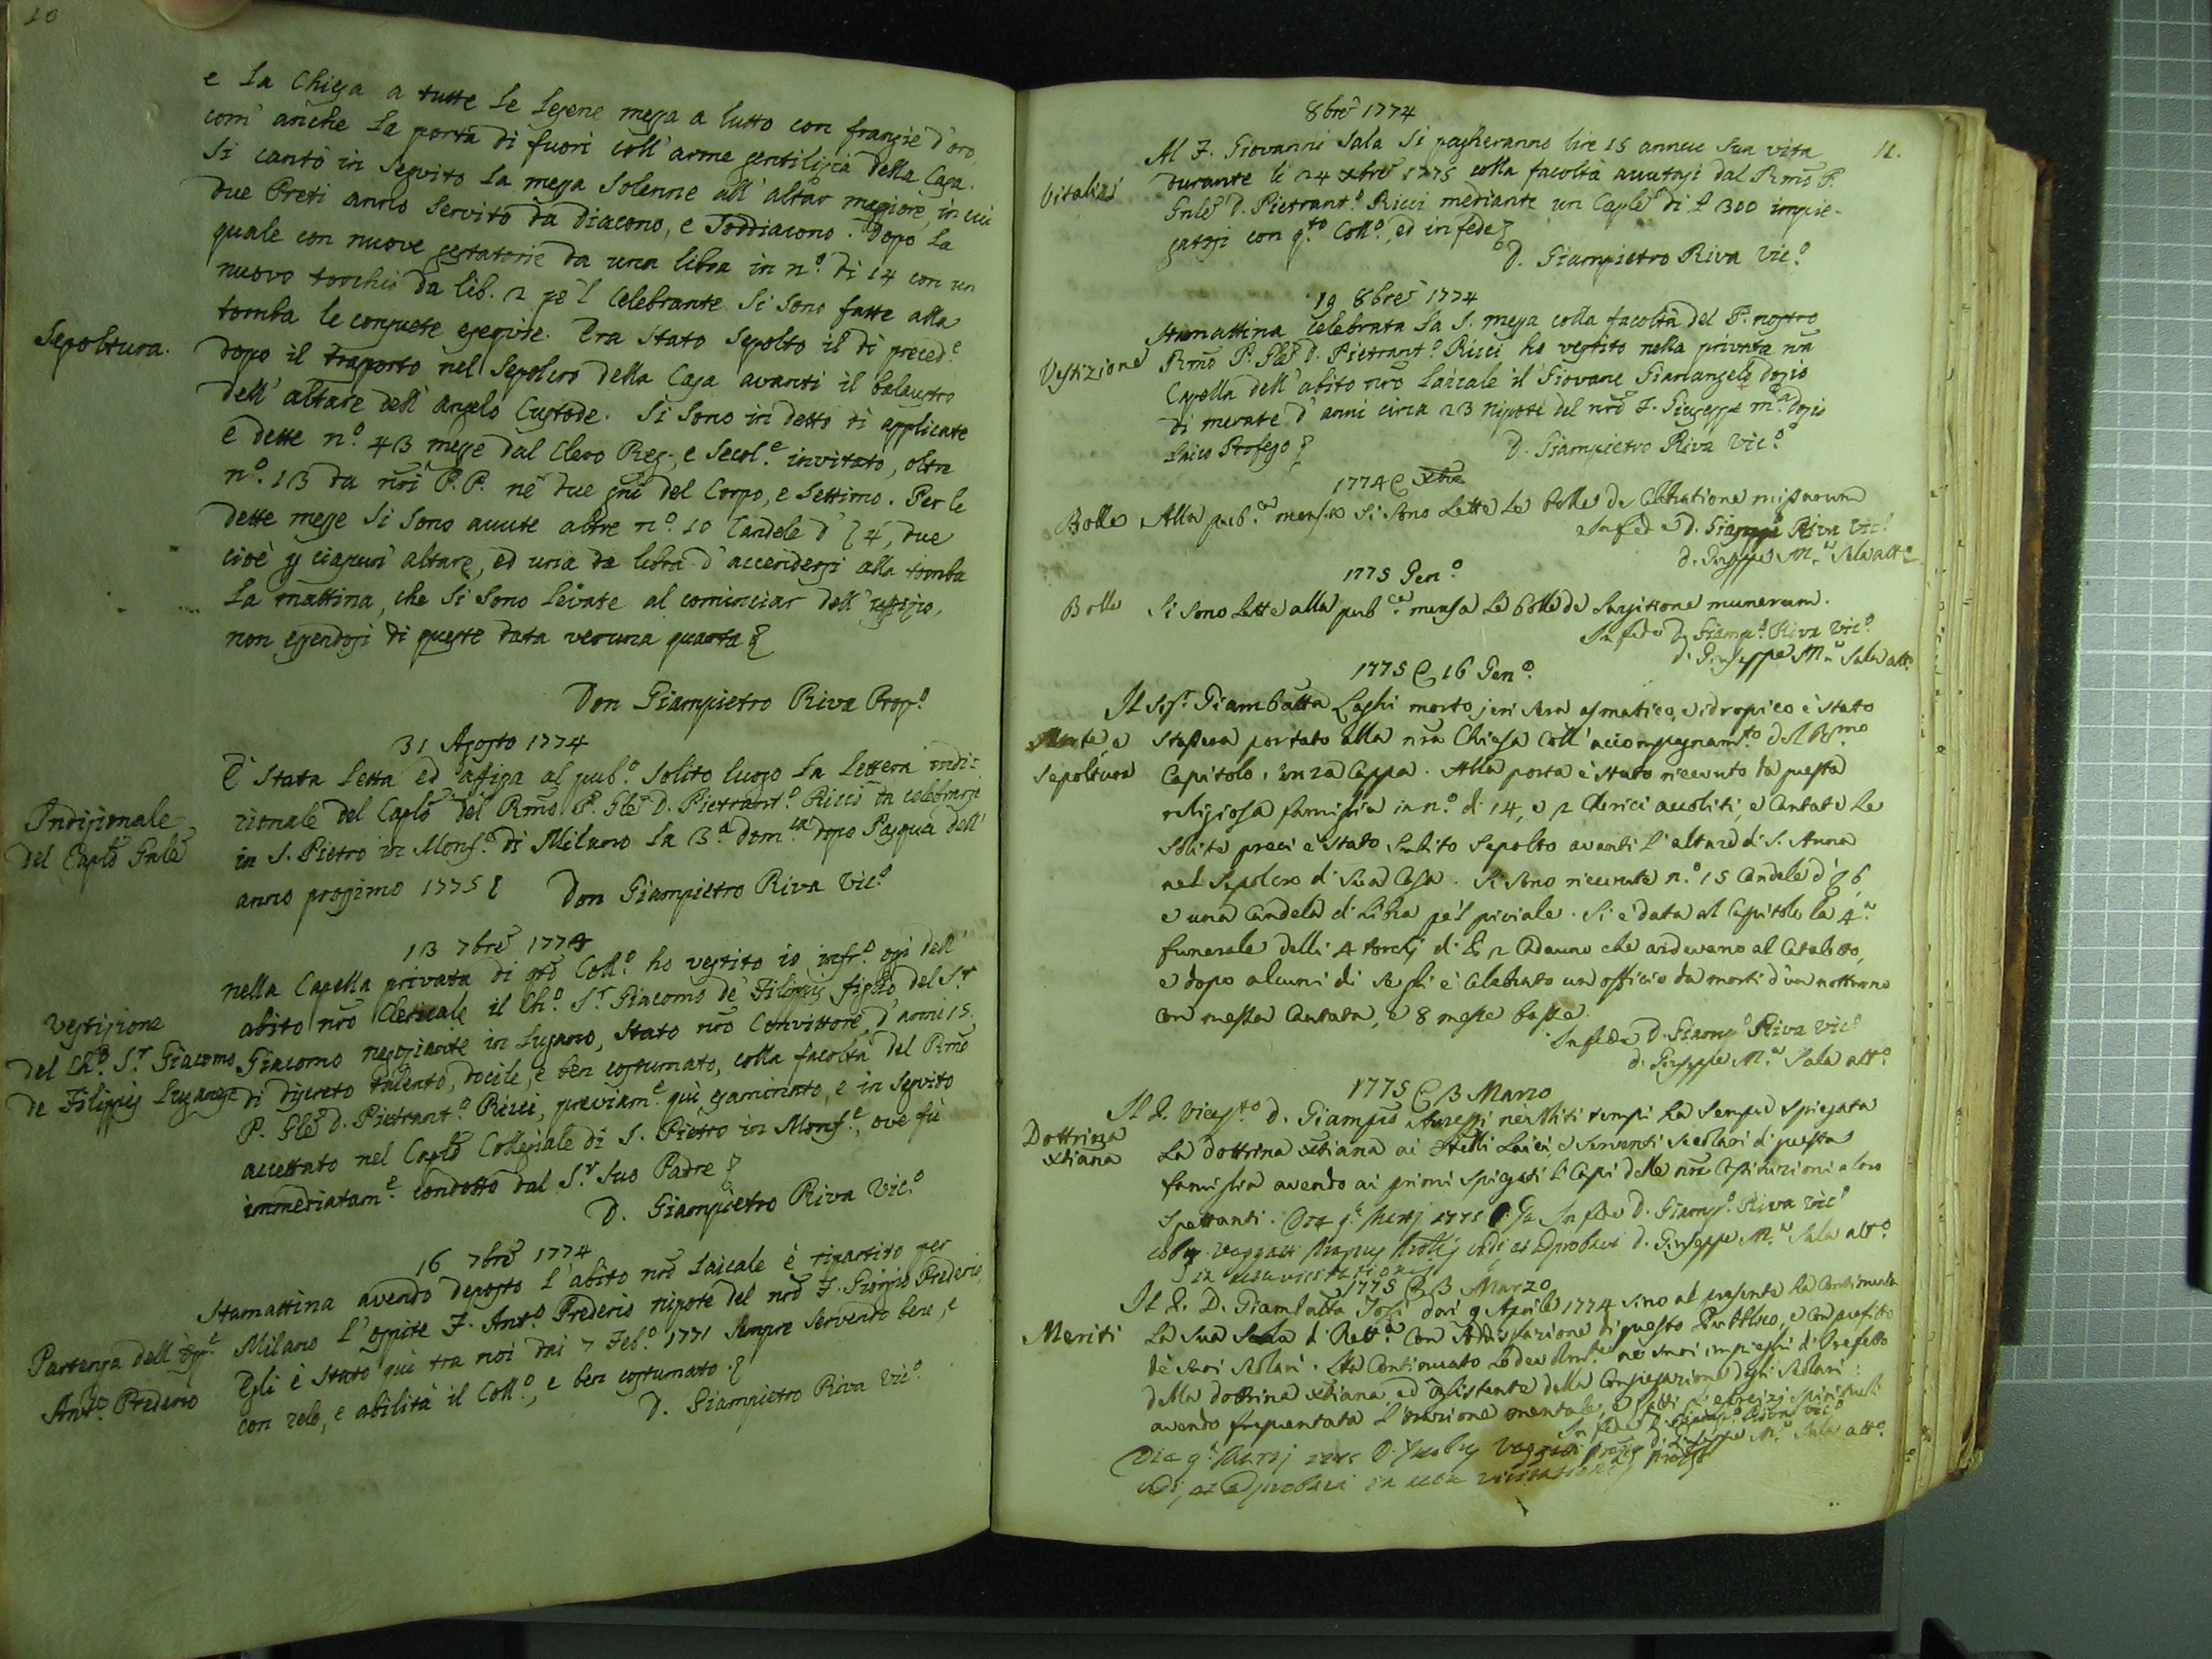 10
e la Chiesa a tutte le lesene messa a lutto con frangie d'oro,
com' anche la porta di fuori coll' arme gentilizia della Casa.
Si cantò in seguito la messa solenne all' altar maggiore, in cui
due Preti anno servito da Diacono, e Soddiacono. Dopo la
quale con nuove gestatorie da una libra in n.º di 14 con un
nuovo torchio da lib. 2 pe 'l Celebrante si sono fatte alla
tomba le consuete esequie. Era stato sepolto il dì preced.e
Sepoltura.
dopo il trasporto nel sepolcro della Casa avanti il balaustro
dell' altare dell' Angelo Custode. Si sono in detto dì applicate
e dette n.º 43 messe dal Clero Reg. e Secol.e invitato, oltre
n.º 13 da nri P.P. ne due gni del Corpo, e Settimo. Per le
dette messe si sono avute altre n.º 10 Candele d' 4, due
cioè p ciascun altare, ed una da libra d' accendersi alla tomba
la mattina, che si sono levate al cominciar dell' uffizio,
non essendosi di queste data veruna quarta
Don Giampietro Riva Prop.º
31 Agosto 1774
È stata letta ed affissa al pub.º solito luogo la lettera indi-
Indizionale
del Caplo Gnle
zionale del Caplo del Rmo P. Gle D. Pietrant.º Ricci da celebrarsi
in S. Pietro in Monf.e di Milano la 3.a dom.ca dopo Pasqua dell'
anno prossimo 1775 Don Giampietro Riva Vic.º
13 7bre 1774
nella Capella privata di qto Coll.º ho vestito io infr.º ogi dell'
Vestizione
del Ch.º S.r Giacomo
de Filippis Luganese
abito nro Clericale il Ch.º S.r Giacomo de Filippis figlio del S.r
Giacomo negoziante in Lugano, stato nro Convittore, d' anni 15.
di discreto talento, docile, e ben costumato, colla facoltà del Rmo
P. Gle D. Pietrant.º Ricci, previam.e qui esaminato, e in seguito
accettato nel Caplo Collegiale di S. Pietro in Monf.e, ove fù
immediatam.e condotto dal S.r Suo Padre
D. Giampietro Riva Vic.º
16 7bre 1774
Stamattina avendo deposto l' abito nro laicale è ripartito per
Partenza dell' Osp.e
Ant.º Prederio
Milano l' ospite F. Ant.º Prederio nipote del nro F. Giorgio Prederio,
Egli è stato quì tra noi dai 7 Feb.º 1771 sempre servendo bene, e
con zelo, e abilità il Coll.º, e ben costumato.
D. Giampietro Riva Vic.º
11.
8bre 1774
Vitalizi
Al F. Giovanni Sala si pagheranno lire 15 annue sua vita
durante li 24 xbre 1775 colla facoltà avutasi dal Rmo P.
Gnle D. Pietrant.º Ricci mediante un Caple di L 300 impie-
gatosi con q.to Coll.º, ed in fede
D. Giampietro Riva Vic.º
19 8bre 1774
Vestizione
Stamattina celebrata la S. messa colla facoltà del P. nostro
Rmo P. Gle D. Pietrant.º Ricci ho vestito nella privata nra
Capella dell' abito nro laicale il Giovane Gianangelo Dozio
di merate d' anni circa 23 nipote del nro F. Giuseppe M.a Dozio
laico Professo
D. Giampietro Riva Vic.º
1774 xbre
Bolle Alla pub.ca mensa si sono lette le bolle de Celebratione missarum
In fede D. Giamp.º Riva Vic.º
D. Giuseppe M.a Sala att.º
1775 Gen.º
Bolle Si sono lette alla pub.ca mensa le bolle de largitione munerum.
In fede D. Giamp.º Riva Vic.º
D. Giuseppe M.a Sala att.º
1775 16 Gen.º
Il Sig.r Giambatta Laghi morto jeri sera asmatico, e idropico è stato
Morte e
Sepoltura
stassera portato alla nra Chiesa coll' accompagnam.to del Rmo
Capitolo, in za Cappa. Alla porta è stato ricevuto da questa
religiosa famiglia in n.º di 14, e 2 Clerici accoliti, e cantate le
solite preci è stato subito sepolto avanti l' altare di S. Anna
nel sepolcro di sua Casa. Si sono ricevute n.º 15 Candele d' 6
e una Candela di libra pe 'l piviale. Si è data al Capitolo la 4.a
funerale delli 4 torchj di lb 2 cadauno che ardevano al Cataletto,
e dopo alcuni dì se gli è celebrato un officio da morti d' un notturno
con messa cantata, e 8 messe basse.
In fede D. Giamp.º Riva Vic.º
D. Giuseppe M.a Sala att.º
1775 3 Marzo
Dottrina
xtiana
Il P. Vicep.to D. Giamp.º ne soliti tempi ha sempre spiegata
la dottrina xtiana ai fratelli Laici, e serventi secolari di questa
famiglia avendo ai primi spiegati li Capi delle nre Costituzioni a loro
spettanti. In fede D. Giamp.º Riva Vic.º
vidi, et adprobavi D. Giuseppe M.a Sala att.º
in actu visitationis
1775 3 Marzo
Meriti
Il P. D. Giambatta dai 9 Aprile 1774 sino al presente ha continuata
la sua scuola di Rett.ca con soddisfazione di questo Pubblico, e con profitto
de suoi scolari. Ha continuato lodevolm.te ne suoi impieghi di Prefetto
della dottrina xtiana, ed assistente della Congregazione degli scolari:
avendo frequentata l' orazione mentale, e fatti l' esercizi spirituali
In fede D. Giamp.º Riva Vic.º
D. Giuseppe M.a Sala att.º
Die 9.a
vidi, et adprobavi in actu visitationis